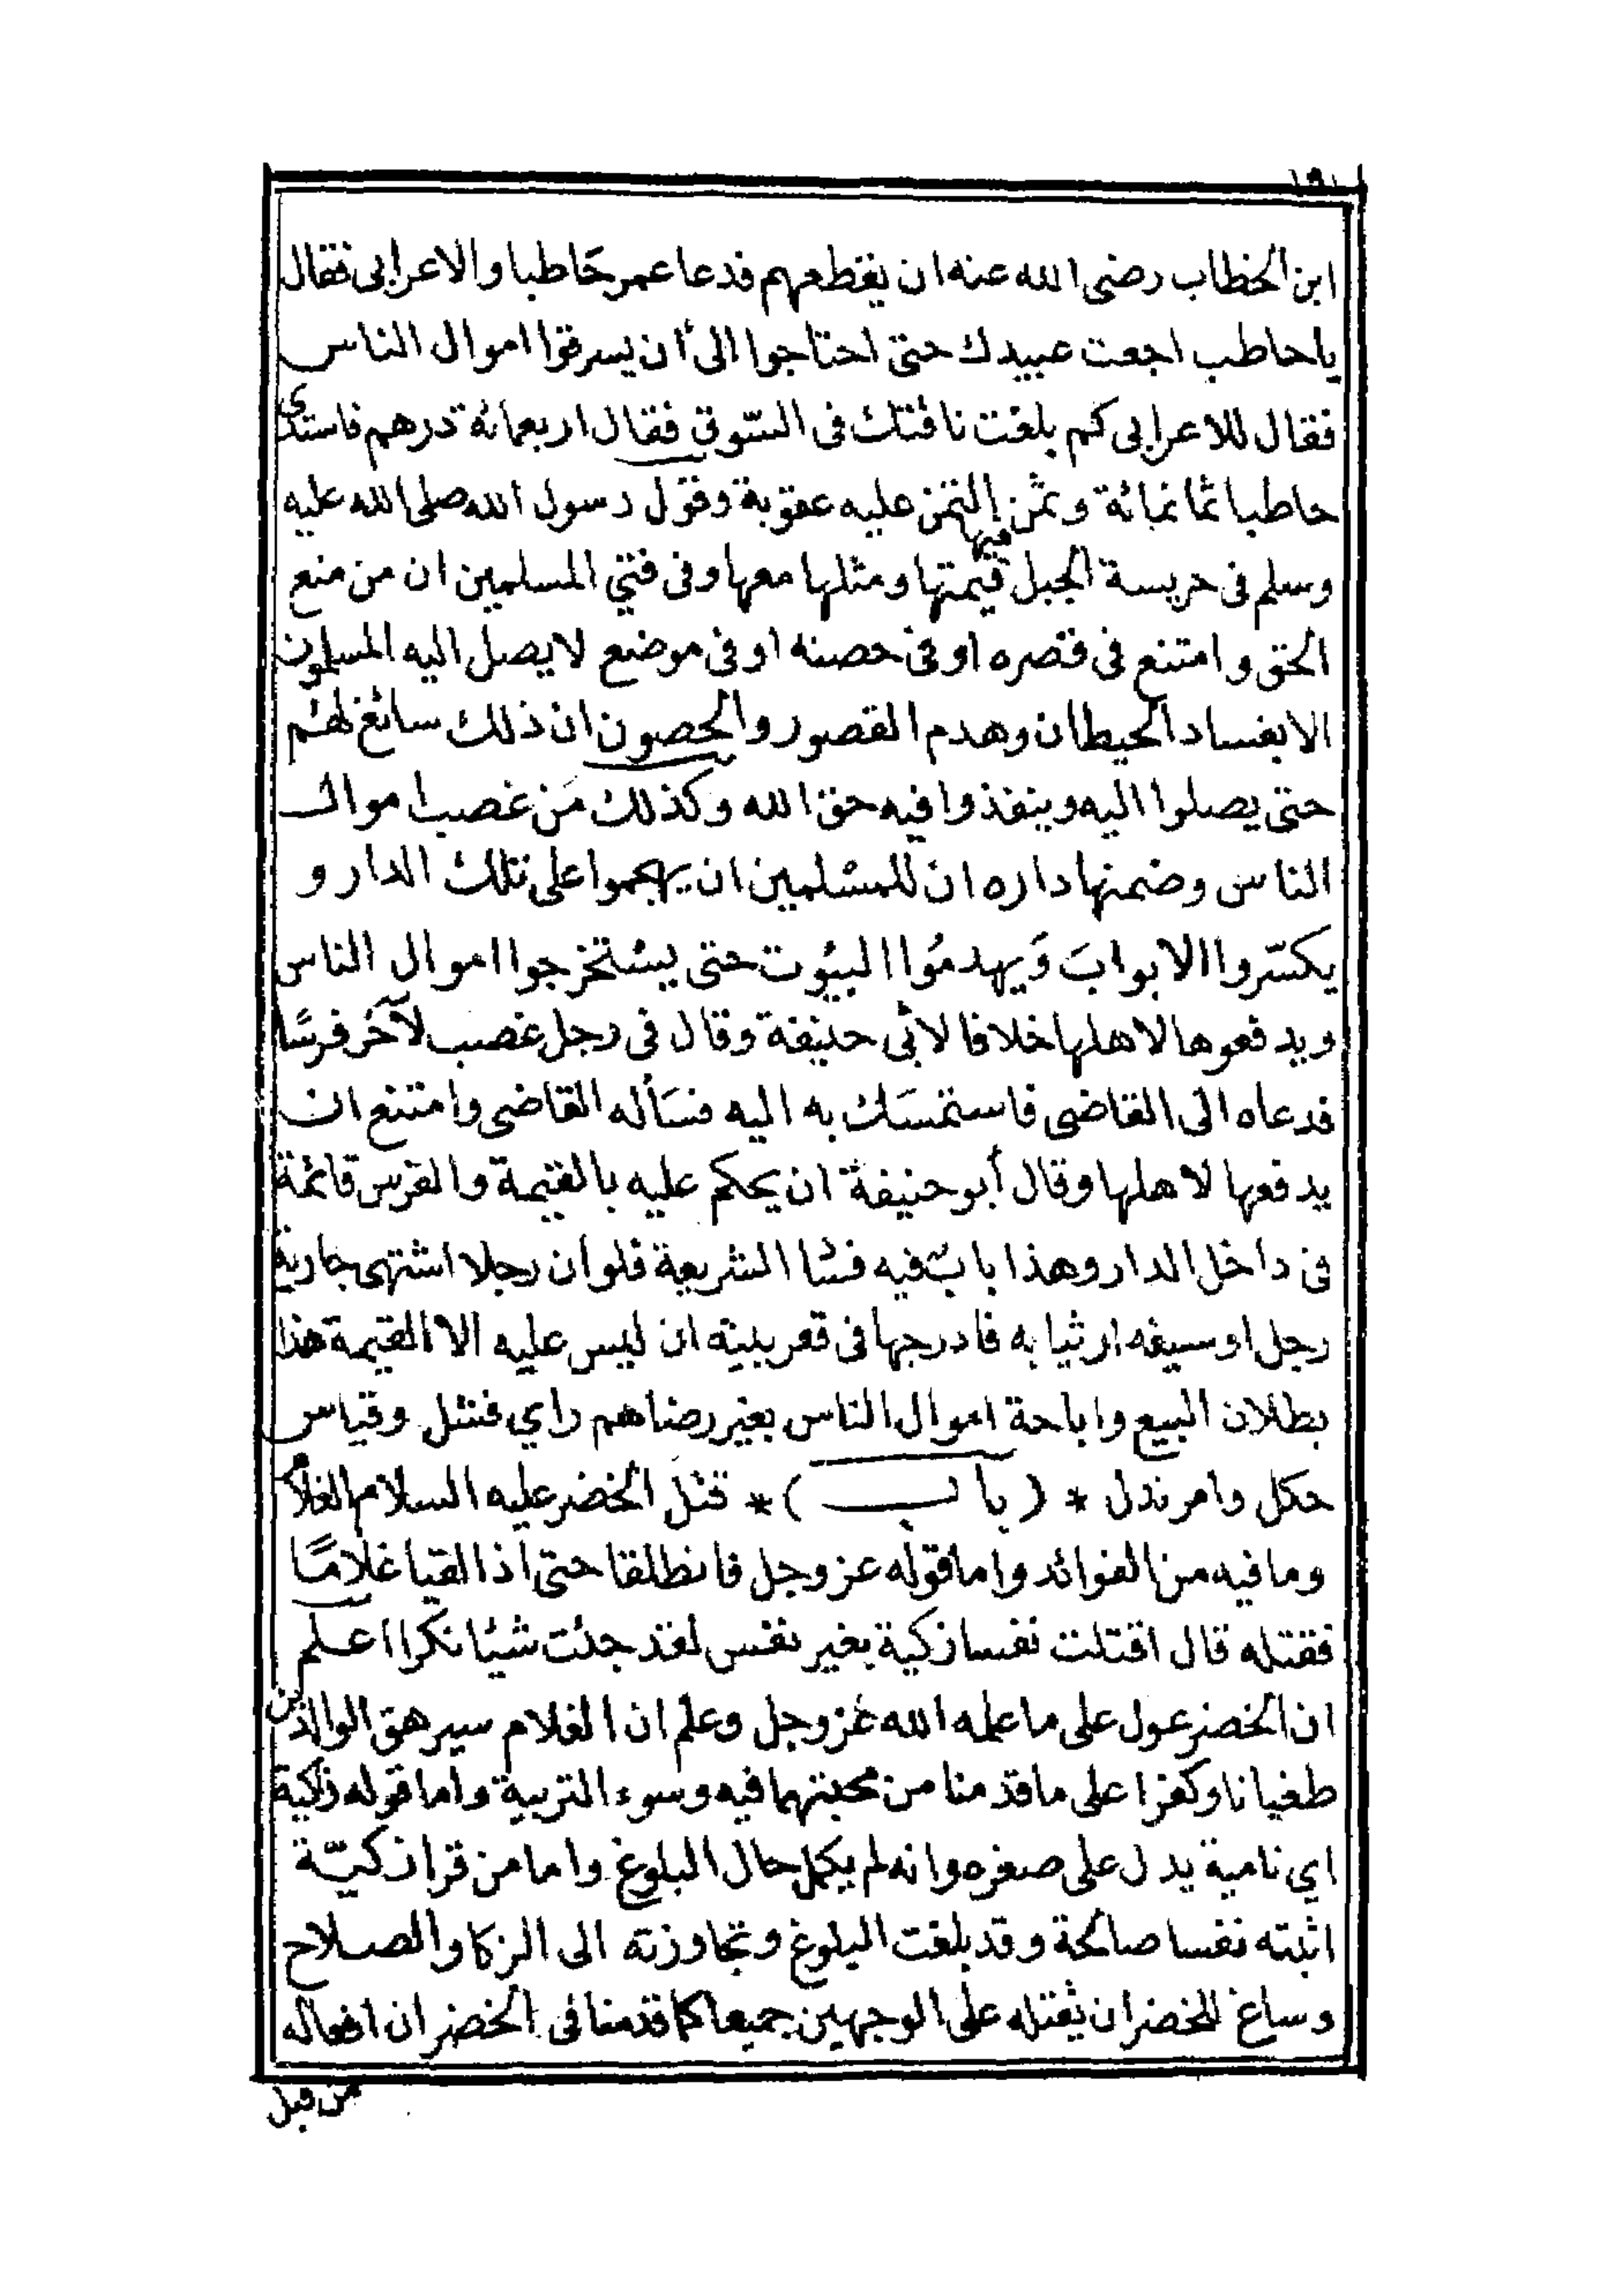 ١٩٠
ابن الخطاب رضى الله عنه ان يقطعهم فدعا عمر حَاطبا والاعرابى فقال
ياحاطب اجعت عبيدك حتى احتاجوا الى أن يسرقوا اموال الناس
فقال للاعرابى كم بلغت ناقتك فى السّوق فقال اربعمائة درهم فاستدى
حاطبا ثمانمائة وثمّن الثمن عليه عقوبة وقول رسول الله صلى الله عليه
وسلم فى حريسة الجبل فيها قيمتها ومثلها معها وفى فتيٍ المسلمين ان من منع
الحق وامتنع فى قصره او فى حصنه او فى موضع لا يصل اليه المسلمون
الا بفساد الحيطان وهدم القصور والحصون ان ذلك سائغ لهم
حتى يصلوا اليه وينفذوا فيه حق الله وكذلك مَن غصب اموال
الناس وضمنها داره ان للمسلمين ان يهجموا على تلك الدار و
يكسّروا الابوابَ وَيهدمُوا البيُوت حتى يستخرجوا اموال الناس
ويدفعوها لاهلها خلافا لأبى حنيفة وقال فى رجل غصب لآخر فرسًا
فدعاه الى القاضى فاستمسَك به اليه فسَأله القاضى وامتنع ان
يدفعها لاهلها وقال أبو حنيفة ان يحكم عليه بالقيمة والفرس قائمة
فى داخل الدار وهذا بابٌ فيه فسَا الشريعة فلو أن رجلا اشتهى جارية
رجل او سيفه او ثيابه فادرجها فى قعر بيته ان ليس عليه الا القيمة هذا
بطلان البيع واباحة اموال الناس بغير رضاهم راي فشل وقياس
حكل وامر ندل * ( باب ) * قتل الخضر عليه السلام الغلام
وما فيه من الفوائد واما قوله عز وجل فانطلقا حتى اذا لقيا غلامًا
فقتله قال اقتلت نفسا زكية بغير نفس لقد جئت شيئا نكرا اعلم
ان الخضر عول على ما علمه الله عز وجل وعلم ان الغلام سيرهق الوالدين
طغيانا وكفرا على ما قدمنا من محبتهما فيه وسوء التربية واما قوله زكية
اي نامية يدل على صغره وانه لم يكمل حال البلوغ واما من قرا زكيّة
اثبته نفسا صالحة وقد بلغت البلوغ وتجاوزته الى الزكا والصلاح
وساغ للخضر ان يقتله على الوجهين جميعا كما قدمنا فى الخضر ان افعاله
من قبل